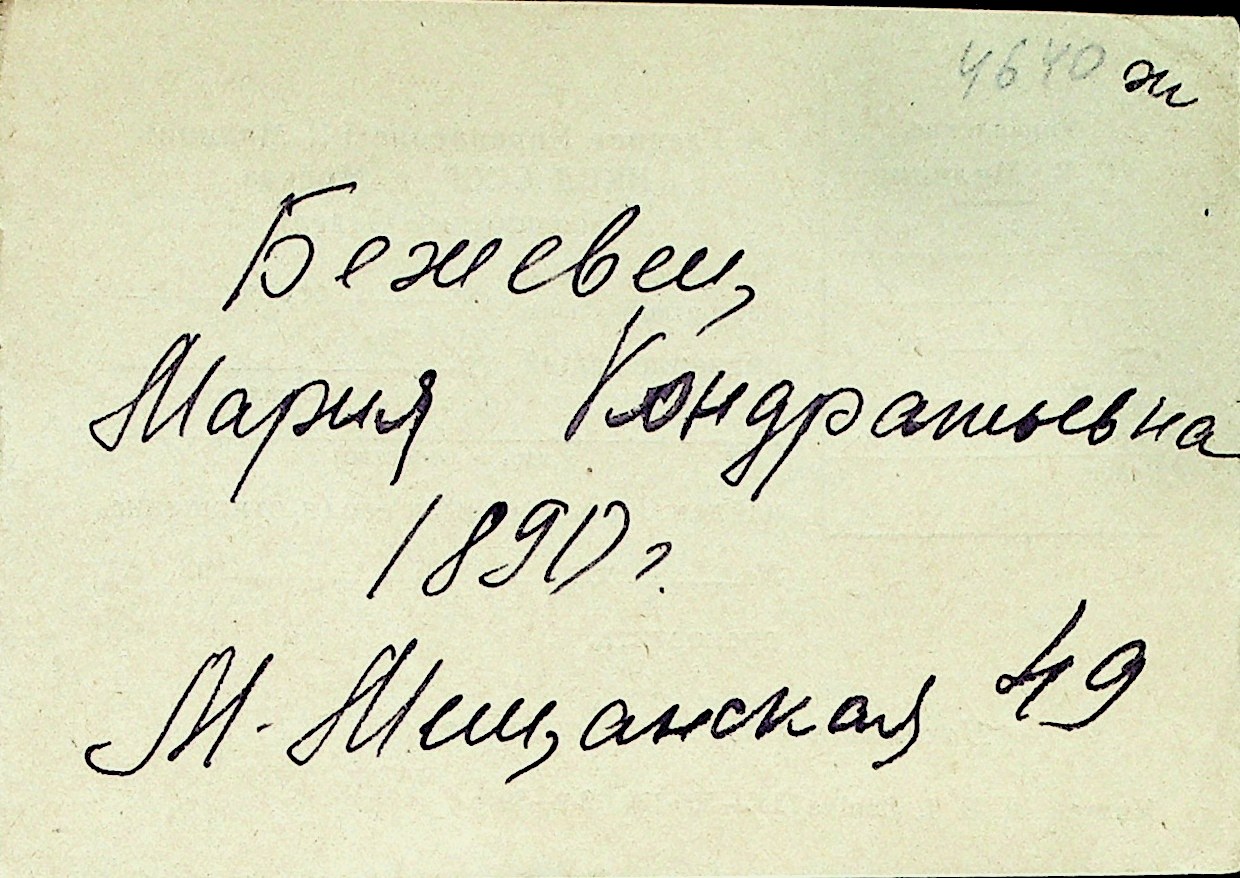 4640 ж
Бежевец
Мария Кондратьевна
1890 г.
М. Мещанская 49